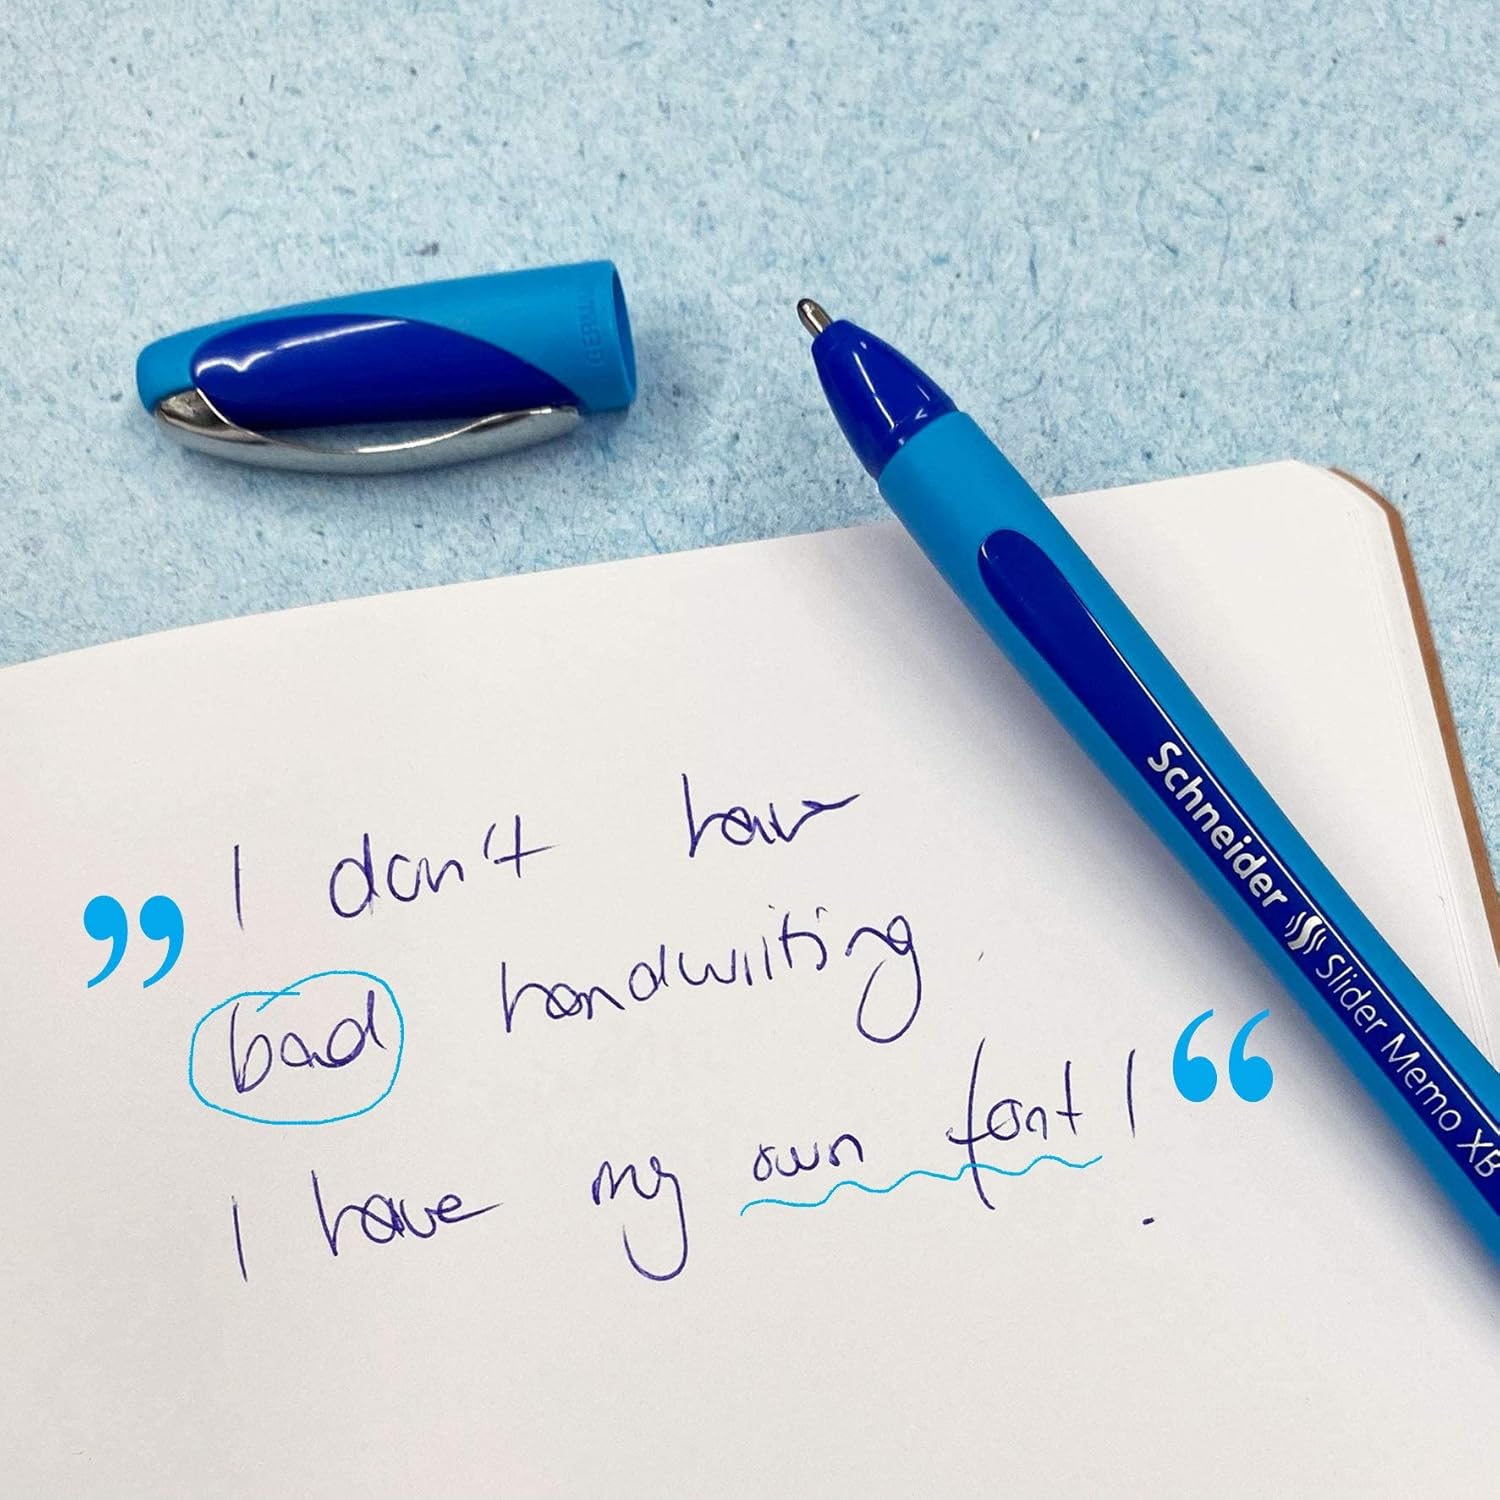 GERMANY
Schneider Slider Memo XB
” I don't have
bad handwriting
I have my own font! “